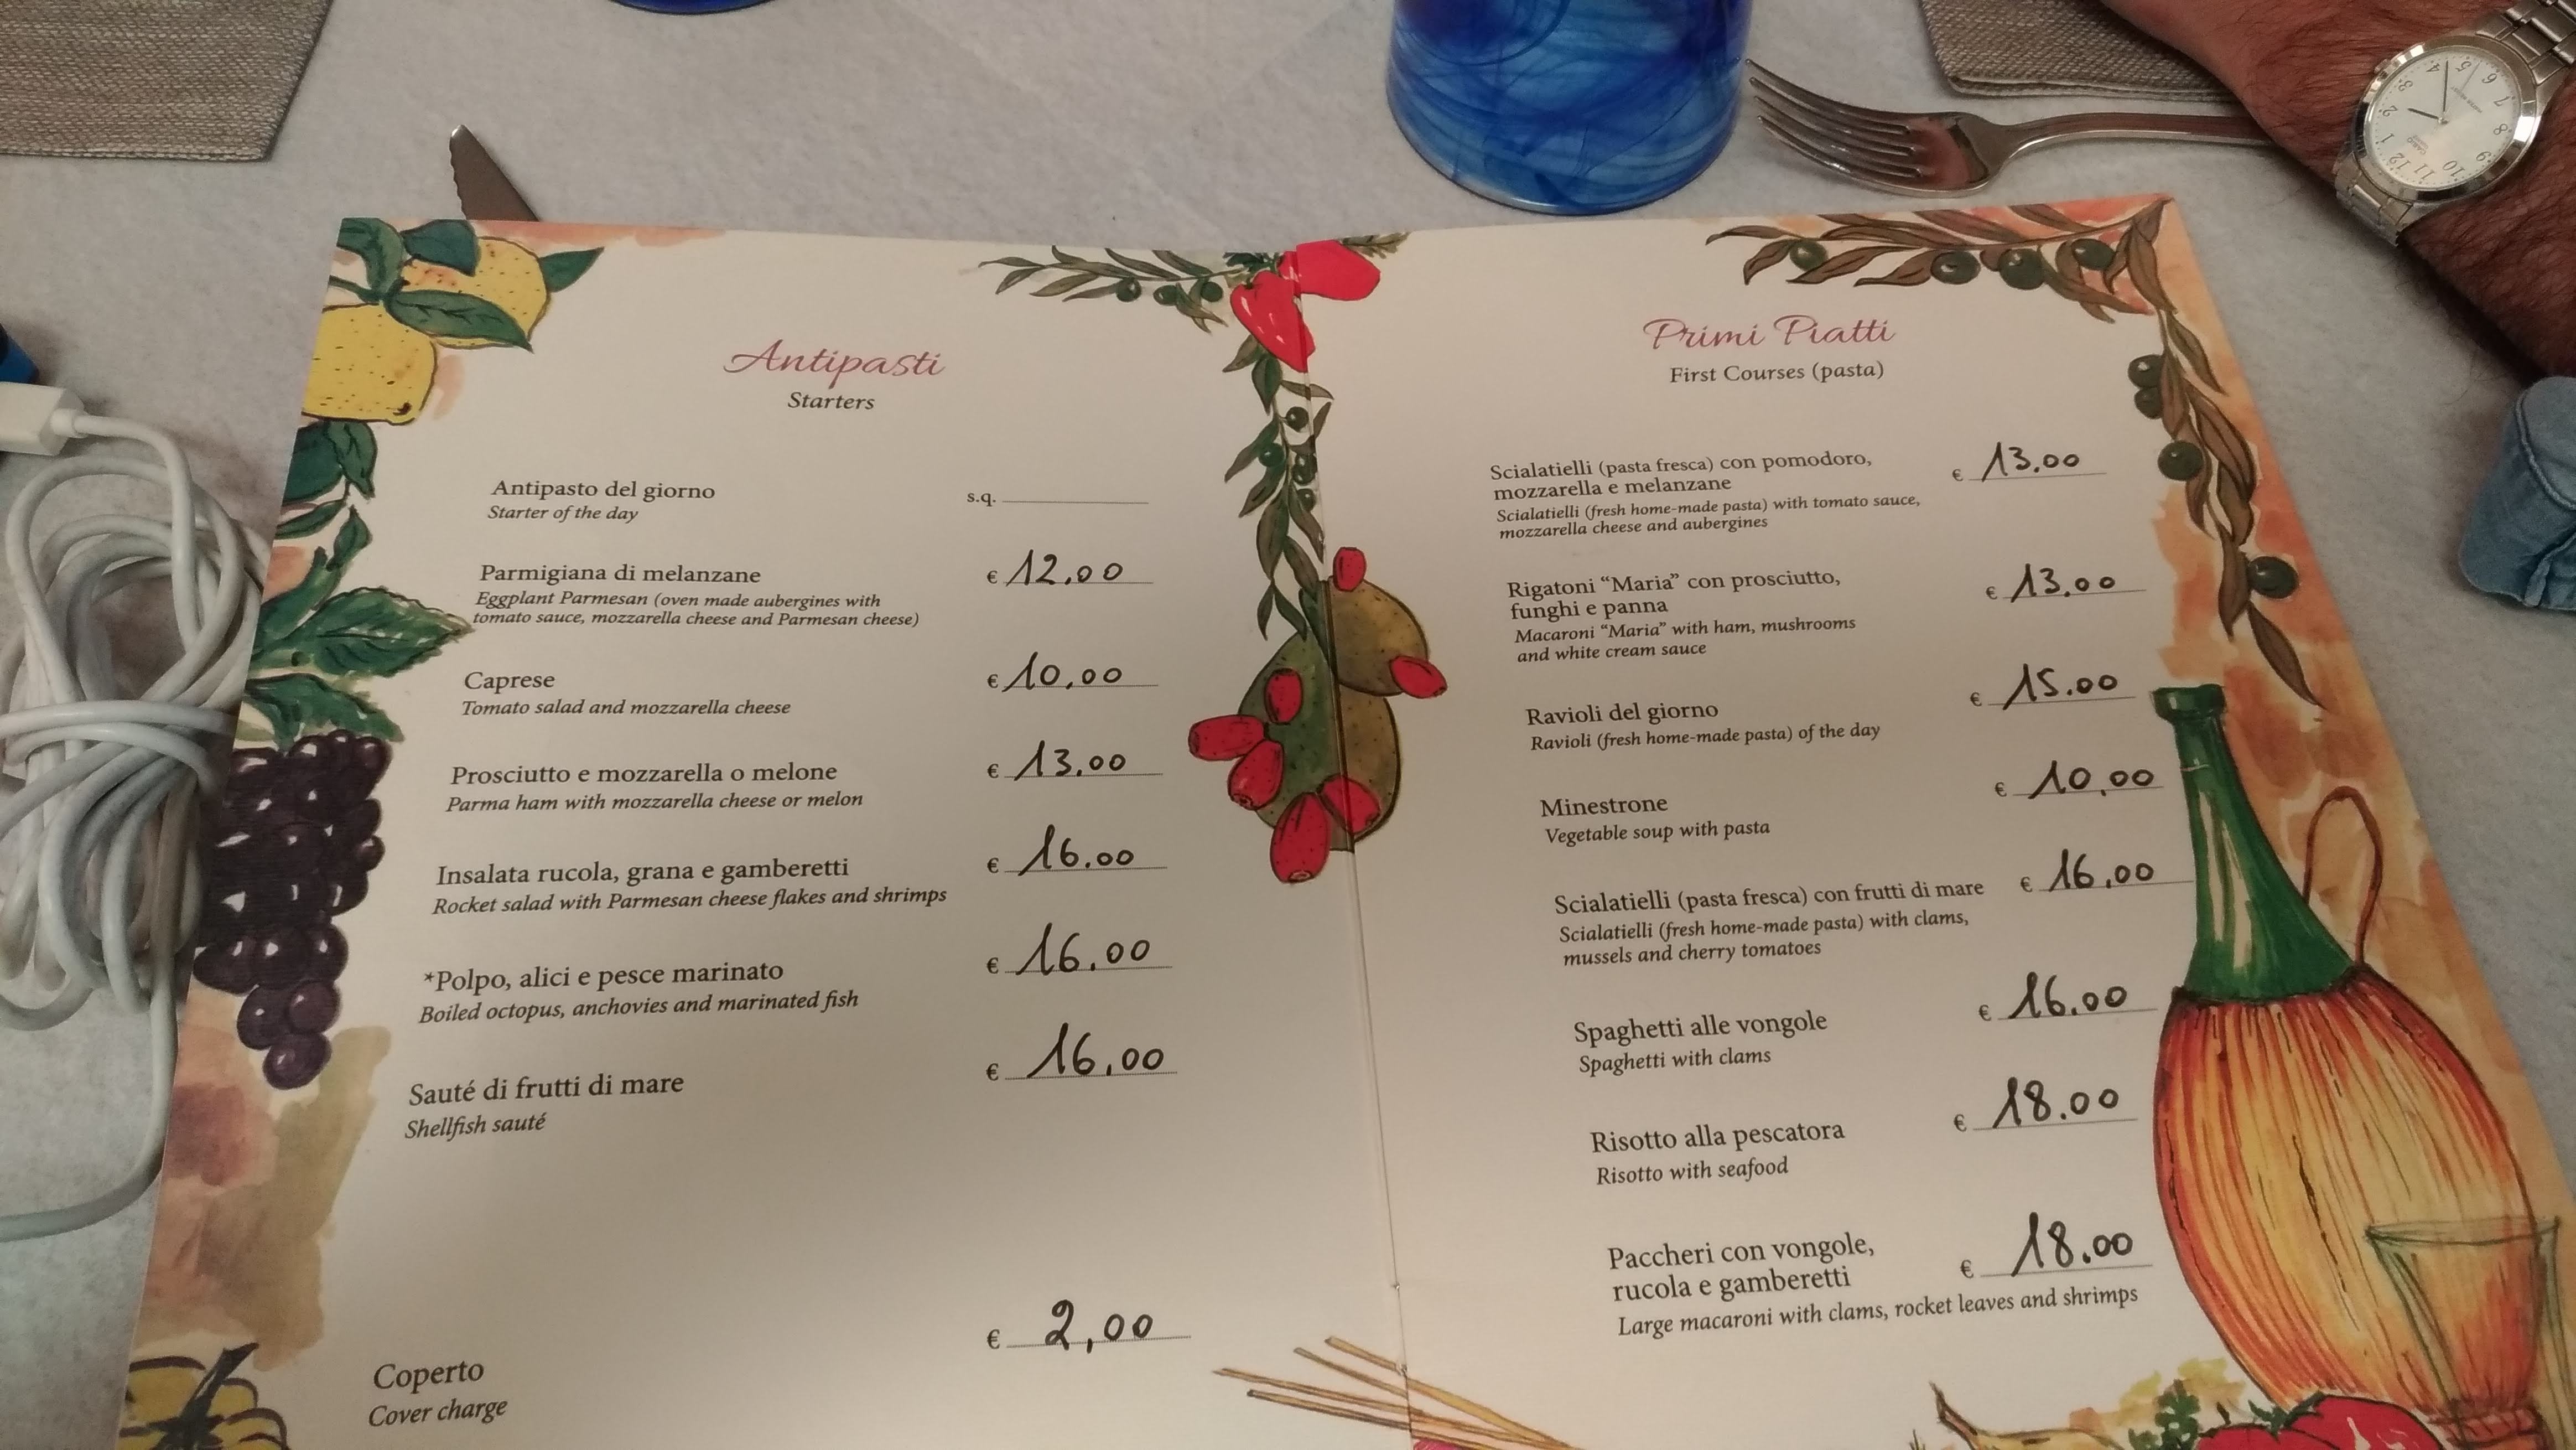 Antipasti
Starters
Antipasto del giorno s.q.
Starter of the day
Parmigiana di melanzane € 12,00
Eggplant Parmesan (oven made aubergines with
tomato sauce, mozzarella cheese and Parmesan cheese)
Caprese € 10,00
Tomato salad and mozzarella cheese
Prosciutto e mozzarella o melone € 13.00
Parma ham with mozzarella cheese or melon
Insalata rucola, grana e gamberetti € 16.00
Rocket salad with Parmesan cheese flakes and shrimps
*Polpo, alici e pesce marinato € 16.00
Boiled octopus, anchovies and marinated fish
Sauté di frutti di mare € 16,00
Shellfish sauté
Coperto € 2,00
Cover charge
Primi Piatti
First Courses (pasta)
Scialatielli (pasta fresca) con pomodoro, € 13.00
mozzarella e melanzane
Scialatielli (fresh home-made pasta) with tomato sauce,
mozzarella cheese and aubergines
Rigatoni “Maria” con prosciutto, € 13.00
funghi e panna
Macaroni “Maria” with ham, mushrooms
and white cream sauce
Ravioli del giorno € 15.00
Ravioli (fresh home-made pasta) of the day
Minestrone € 10,00
Vegetable soup with pasta
Scialatielli (pasta fresca) con frutti di mare € 16,00
Scialatielli (fresh home-made pasta) with clams,
mussels and cherry tomatoes
Spaghetti alle vongole € 16.00
Spaghetti with clams
Risotto alla pescatora € 18.00
Risotto with seafood
Paccheri con vongole, € 18.00
rucola e gamberetti
Large macaroni with clams, rocket leaves and shrimps
1 2 3 4 5 6 7 8 9 10 11 12